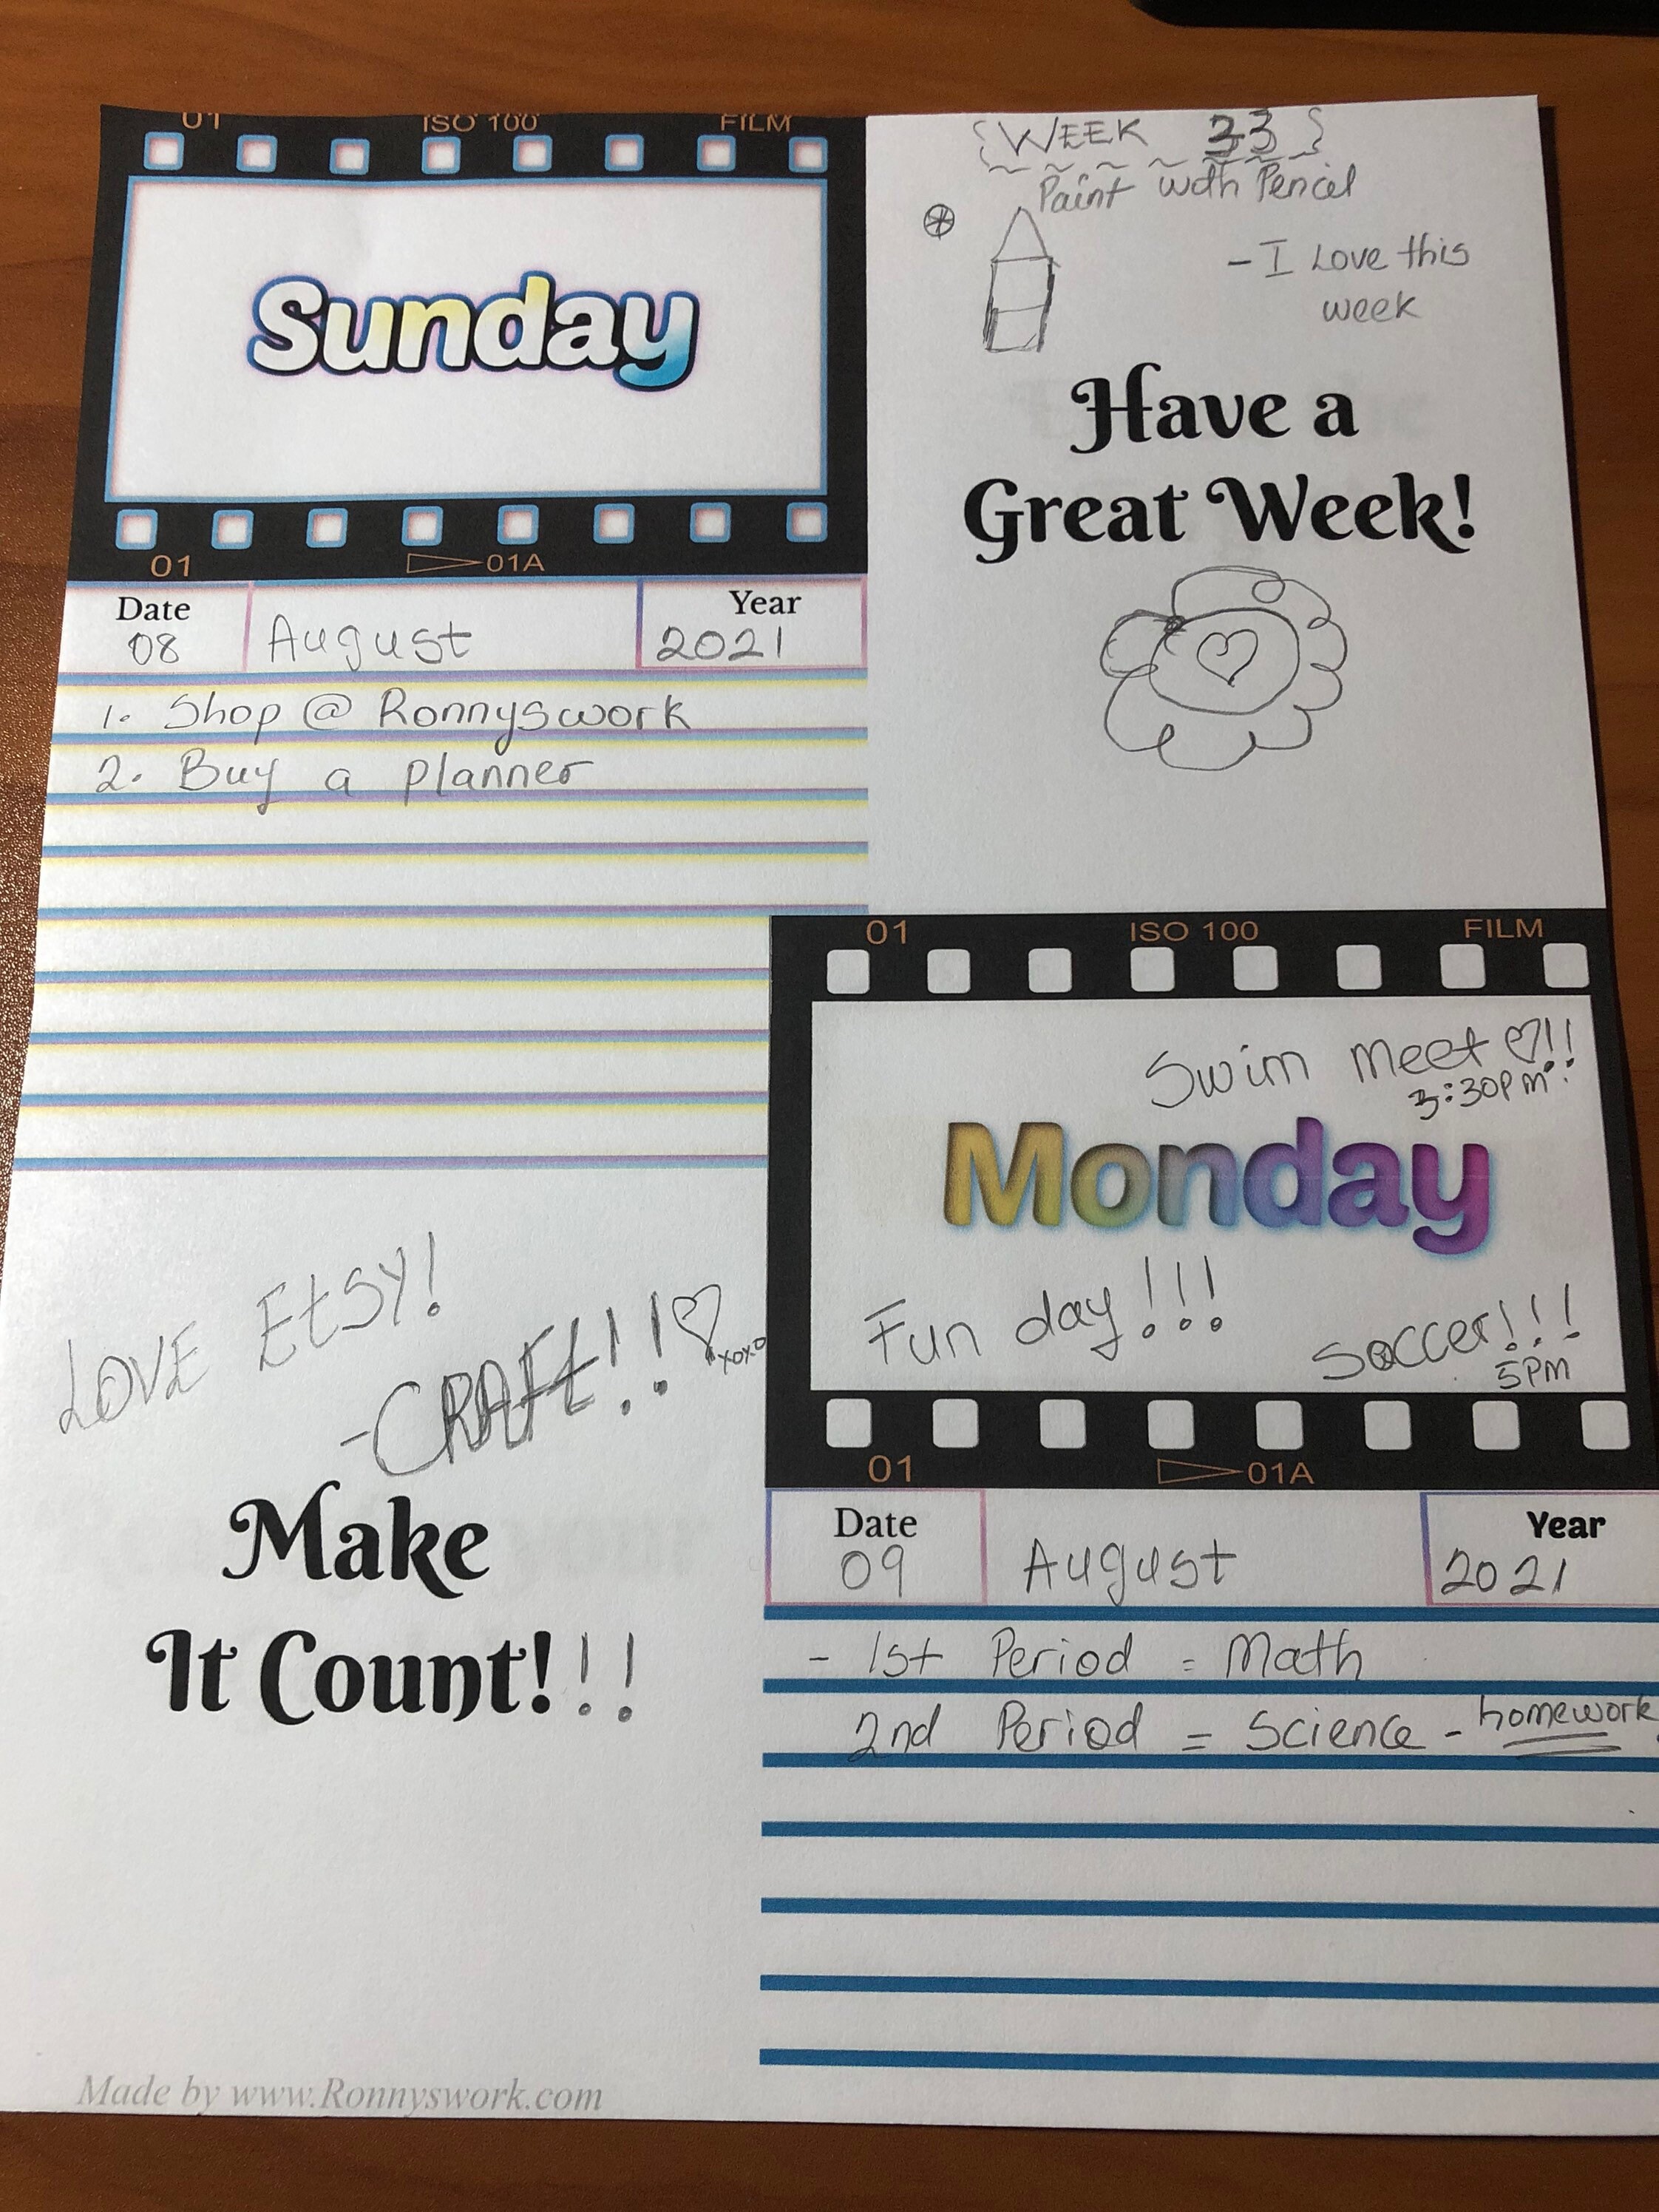 01 ISO 100 FILM
Sunday
01 01A
Date Year
08 August 2021
1. Shop @ Ronnyswork
2. Buy a planner
WEEK 33
Paint with Pencil
- I Love this
week
Have a
Great Week!
01 ISO 100 FILM
Swim meet !!
3:30PM
Monday
Fun day!!!
Soccer!!!
5PM
01 01A
Date Year
09 August 2021
- 1st Period = Math
2nd Period = Science - homework
LOVE Etsy!
- CRAFt!!
xoxo
Make
It Count!!!
Made by www.Ronnyswork.com